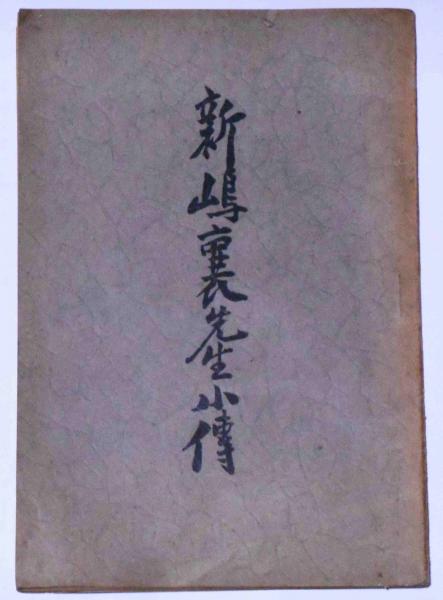 新嶋襄先生小傳